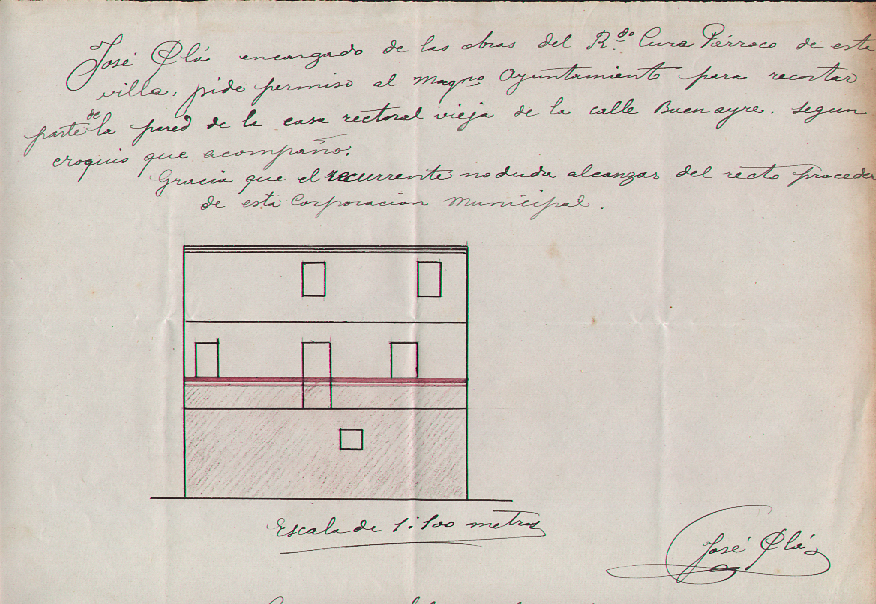 José Plá encargado de las obras del R.do Cura Párroco de este
villa, pide permiso al Magno Ayuntamiento para recostar
parte de la pared de la casa rectoral vieja de la calle Buenayre. segun
croquis que acompaño:
Gracia que el recurrente no duda alcanzar del recto proceder
de esta Corporación Municipal.
Escala de 1:100 metros
José Plá